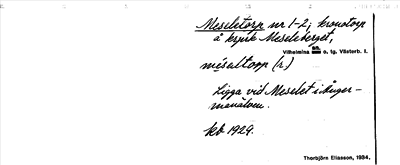 Meseletorp nr 1-2; kronotorp
å krpik Meseleberget,
Vilhelmina sn o. tg. Västerb. l.
mèseltorp (2)
Ligga vid Meselet i Ånger-
manälven.
kb 1929.
Thorbjörn Eliasson, 1934.